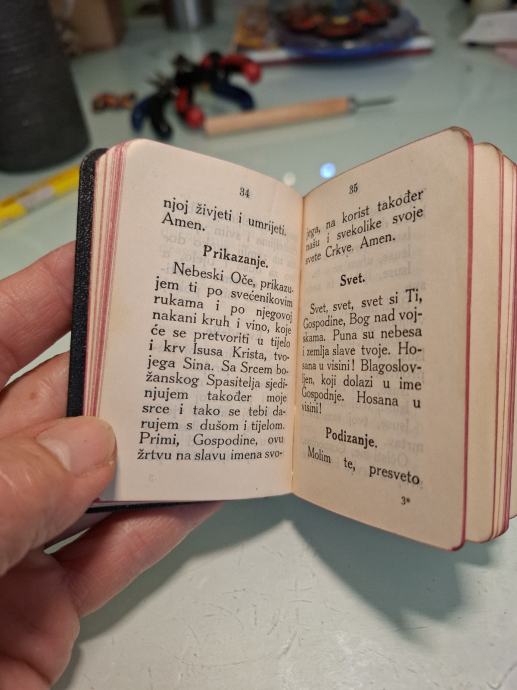 34
njoj živjeti i umrijeti.
Amen.
Prikazanje.
Nebeski Oče, prikazu-
jem ti po svećenikovim
rukama i po njegovoj
nakani kruh i vino, koje
će se pretvoriti u tijelo
i krv Isusa Krista, tvo-
jega Sina. Sa Srcem bo-
žanskog Spasitelja sjedi-
njujem također moje
srce i tako se tebi da-
rujem s dušom i tijelom.
Primi, Gospodine, ovu
žrtvu na slavu imena svo-
35
jega, na korist također
našu i svekolike svoje
svete Crkve. Amen.
Svet.
Svet, svet, svet si Ti,
Gospodine, Bog nad voj-
skama. Puna su nebesa
i zemlja slave tvoje. Ho-
sana u visini! Blagoslov-
ljen, koji dolazi u ime
Gospodnje. Hosana u
visini!
Podizanje.
Molim te, presveto
3*